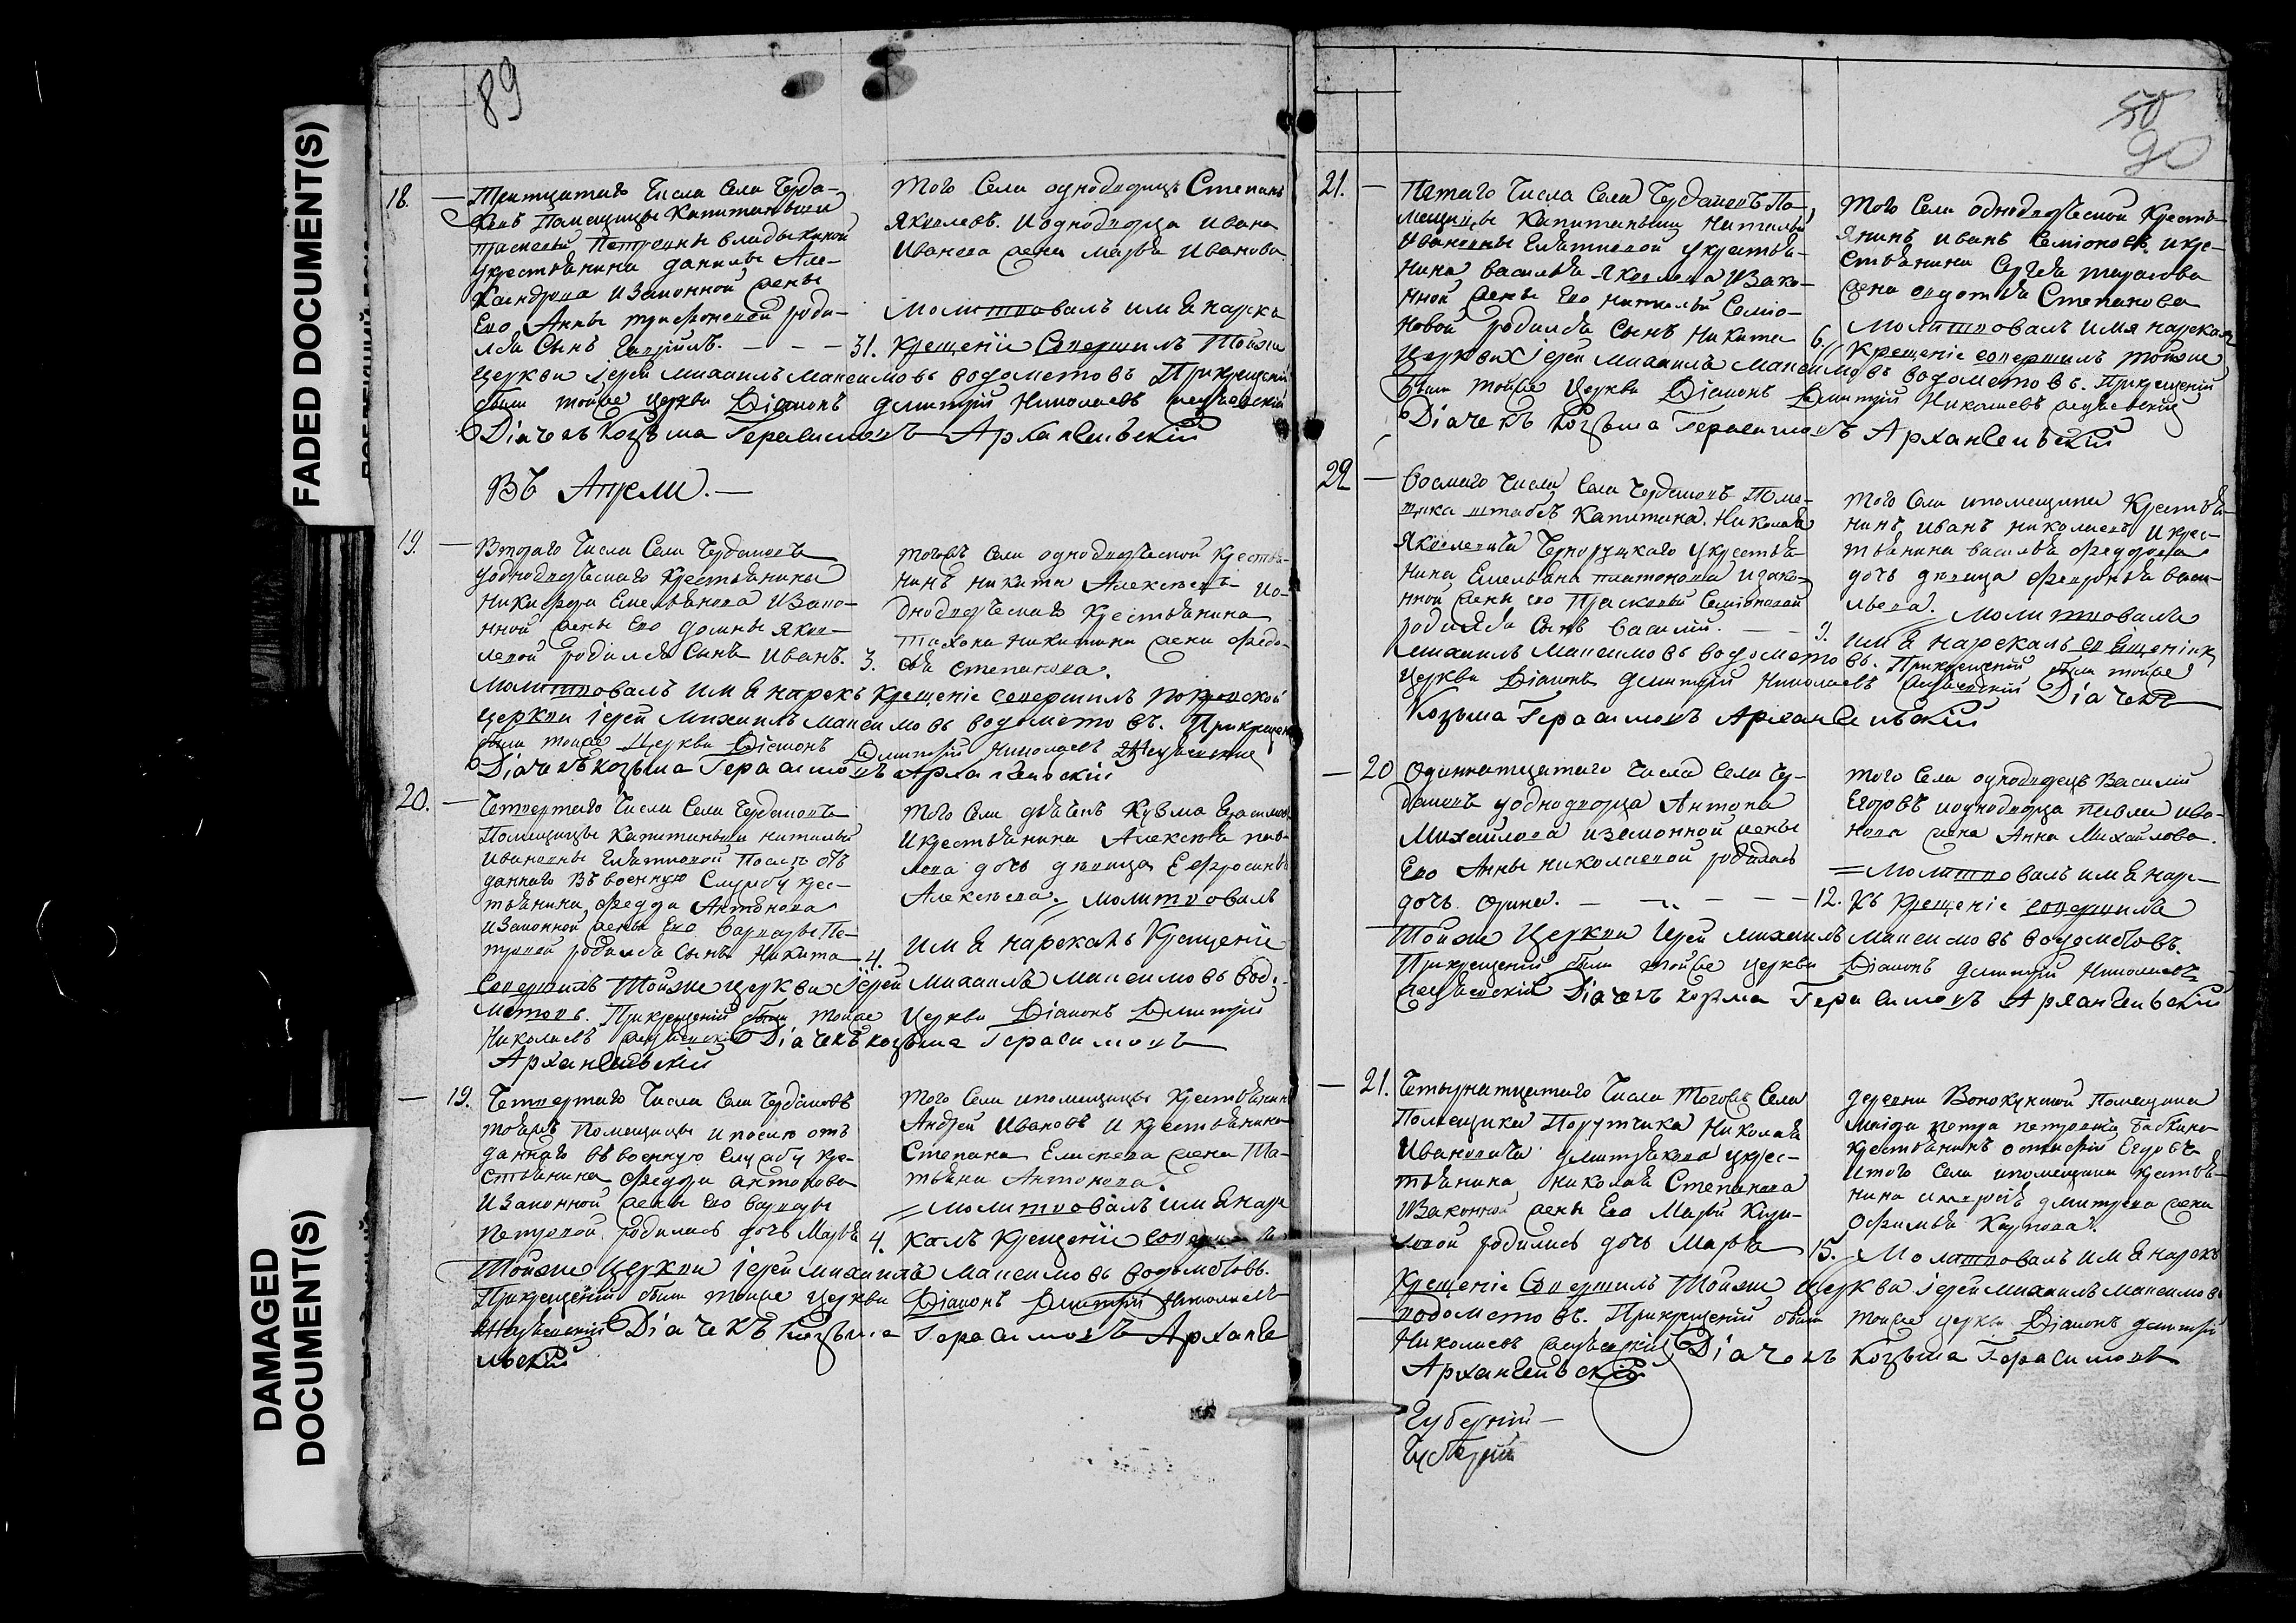 FADED DOCUMENT(S)
DAMAGED
DOCUMENT(S)
89
18. — Тритцатаго Числа Села Чердa-
ковъ Помещицы Капитаньши
Прасковьи Петровны Владыкиной
укрестьянина Данилы Але-
ксандрова изаконной жены
Его Анны Трифоновой роди-
лся Сынъ Гавріилъ. — — — 31.
Того Села однодворецъ Степанъ
Яковлевъ. Иоднодворца Ивана
Иванова жена Марья Иванова
Молитвовалъ имя нареклъ
Крещеніе Совершилъ Тойже
Церкви іерей Михаилъ Максимовъ Водометовъ При крещеніи
были тойже церкви Діаконъ Дмитрій Николаевъ
Діачекъ Козьма Герасимовъ Архангельскій
Въ Апрели. —
19. — Втораго Числа Села Чердаковъ
уоднодворческаго Крестьянина
Никифора Емельянова изако-
нной жены Его Домны Яков-
левой родился Сынъ Иванъ. 3.
Тогожъ Села однодворческой Крестья-
нинъ Никита Алексеевъ ио-
днодворческаго Крестьянина
Тихона Никитина жена Федо-
сья Степанова.
Молитвовалъ имя нареклъ Крещеніе совершилъ Покровской
церкви іерей Михаилъ Максимовъ Водометовъ. При крещеніи
были тойже Церкви Діаконъ Дмитрій Николаевъ
Діачекъ Козьма Герасимовъ Архангельскій
20. — Четвертаго Числа Села Чердаковъ
Помещицы Капитаньши Натальи
Ивановны Елатиевой После отъ
даннаго въ военную Службу крес-
тьянина Федора Антонова
изаконной жены Его Варвары Пе-
тровой родился Сынъ Никита 4.
Того Села дьячекъ Кузма Герасимовъ
Икрестьянина Алексея Пав-
лова дочь девица Ефросинья
Алексеева. Молитвовалъ
имя нарекалъ Крещеніе
Совершилъ Тойже церкви Іерей Михаилъ Максимовъ Водо-
метовъ. При крещеніи были тойже Церкви Діаконъ Дмитрій
Николаевъ Діачекъ Козьма Герасимовъ
Архангельскій
— 19. Четвертаго Числа Села Чердаковъ
тойже Помещицы и после отъ
даннаго въ военную Службу кре-
стьянина Федора Антонова
изаконной жены Его Варвары
Петровой родилась дочь Марья 4.
Того Села и помещицы Крестьянинъ
Андрей Ивановъ и крестьянина
Степана Елисеева жена Та-
тьяна Антонова.
Молитвовалъ имя наре-
калъ крещеніе совершилъ
Тойже церкви іерей Михаилъ Максимовъ Водометовъ.
При крещеніи были тойже церкви Діаконъ Дмитрій Николаевъ
Діачекъ Козьма Герасимовъ Арханге-
льскій
50
90
21. — Пятаго Числа Села Чердаковъ По-
мещицы Капитаньши Натальи
Ивановны Елатиевой укрестья-
нина Василья Яковлева изако-
нной жены Его Натальи Семіо-
новой родился Сынъ Никита 6.
Того Села однодворческой Кресть-
янинъ Иванъ Семіоновъ икре-
стьянина Сергея Тарасова
жена Авдотья Степанова
Молитвовалъ имя нарекалъ
Крещеніе совершилъ тойже
Церкви Іерей Михаилъ Максимовъ Водометовъ. При крещеніи
были тойже Церкви Діаконъ Дмитрій Николаевъ
Діачекъ Козьма Герасимовъ Архангельскій
22 — Восмаго Числа Села Чердаковъ Поме-
щика штабсъ Капитана Николая
Яковлевича Чернуцкаго укрестья-
нина Емельяна Платонова изако-
нной жены его Прасковьи Семіоновой
родился Сынъ Василій. — — 9.
Того Села ипомещика Крестья-
нинъ Иванъ Николаевъ икрес-
тьянина Василья Федорова
дочь девица Февронья Васи-
льева. Молитвовалъ
имя нарекалъ священникъ
Михаилъ Максимовъ Водометовъ. При крещеніи были тойже
Церкви Діаконъ Дмитрій Николаевъ Діачекъ
Козьма Герасимовъ Архангельскій
— 20 Одиннатцатаго Числа Села Чер-
даковъ уоднодворца Антона
Михайлова изаконной жены
Его Анны Николаевой родилась
дочь Орина. — — — 12.
Того Села однодворецъ Василий
Егоровъ иоднодворца Павла Ива-
нова жена Анна Михайлова.
Молитвовалъ имя наре-
клъ крещеніе совершилъ
Тойже Церкви Іерей Михаилъ Максимовъ Водометовъ.
При крещеніи были тойже церкви Діаконъ Дмитрій Николаевъ
Діачекъ Козма Герасимовъ Архангельскій
— 21. Четырнатцатаго Числа Тогожъ Села
Помещика Порутчика Николая
Ивановича Дмитрѣкова укрес-
тьянина Николая Степанова
изаконной жены Его Марьи Кози-
ловой родилась дочь Марья 15.
Деревни Помещика
Маіора Петра Петровича Бабкина
крестьянинъ Егоровъ
итого Села ипомещика крестья-
нина Дмитрева жена
Офимья Карпова.
Молитвовалъ имя нареклъ
Крещеніе Совершилъ Тойже Церкви іерей Михаилъ Максимовъ
Водометовъ. При крещеніи были тойже церкви Діаконъ Дмитрій
Николаевъ Діачекъ Козьма Герасимовъ
Архангельскій
Губерніи —
Губерніи